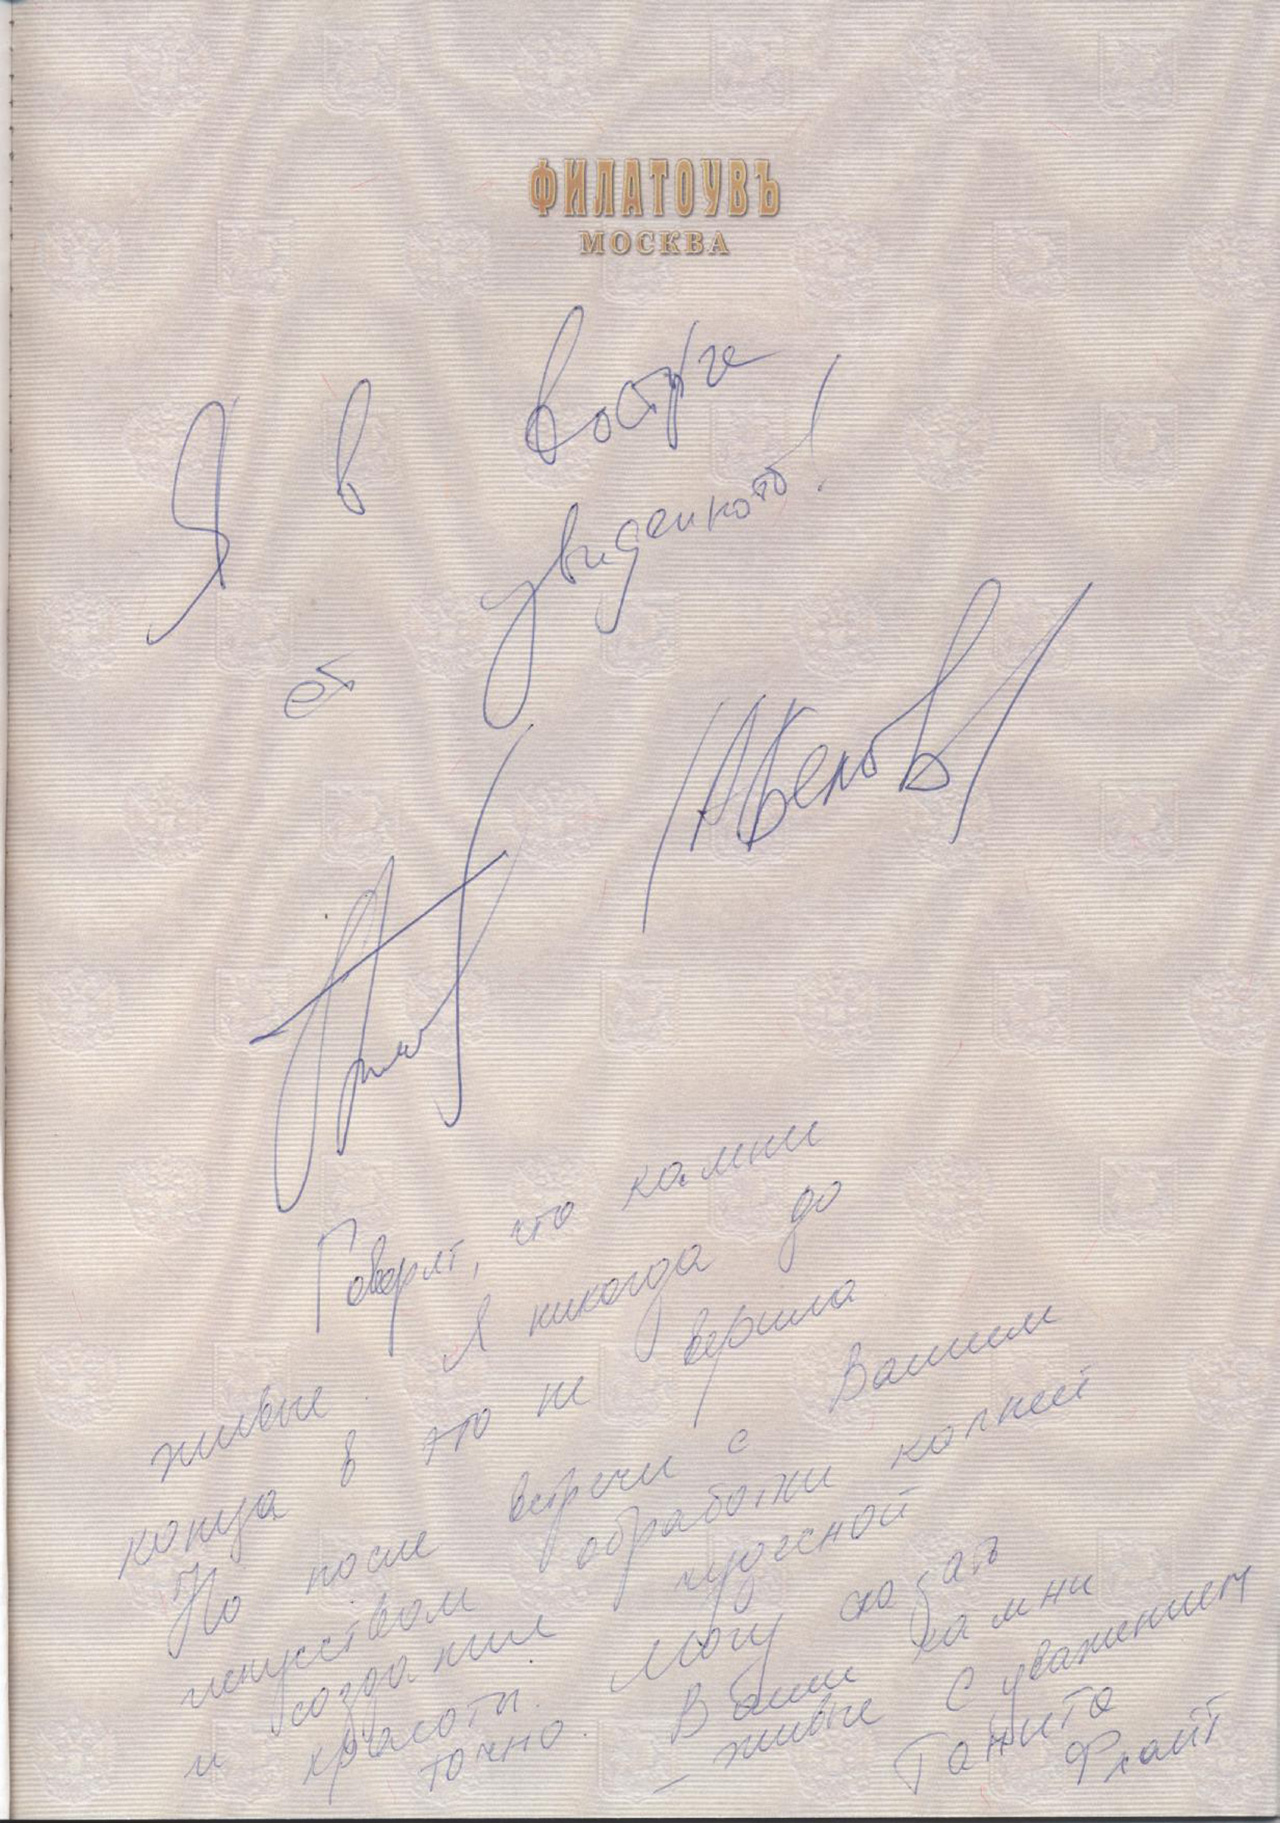 ФИЛАТОУВЪ
МОСКВА
Я в восторге
от увиденного!
/А Белов/
Говорят, что камни
живые. Я никогда до
конца в это не верила
Но после встречи с Вашим
искусством обработки камней
и создания чудесной
красоты. Могу сказать
точно. Ваши камни
– живые С уважением
Танита